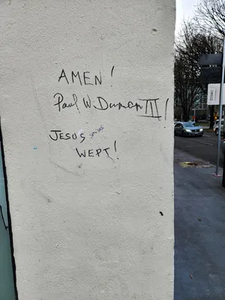 AMEN!
Paul W. Dunon III!
JESUS
WEPT!